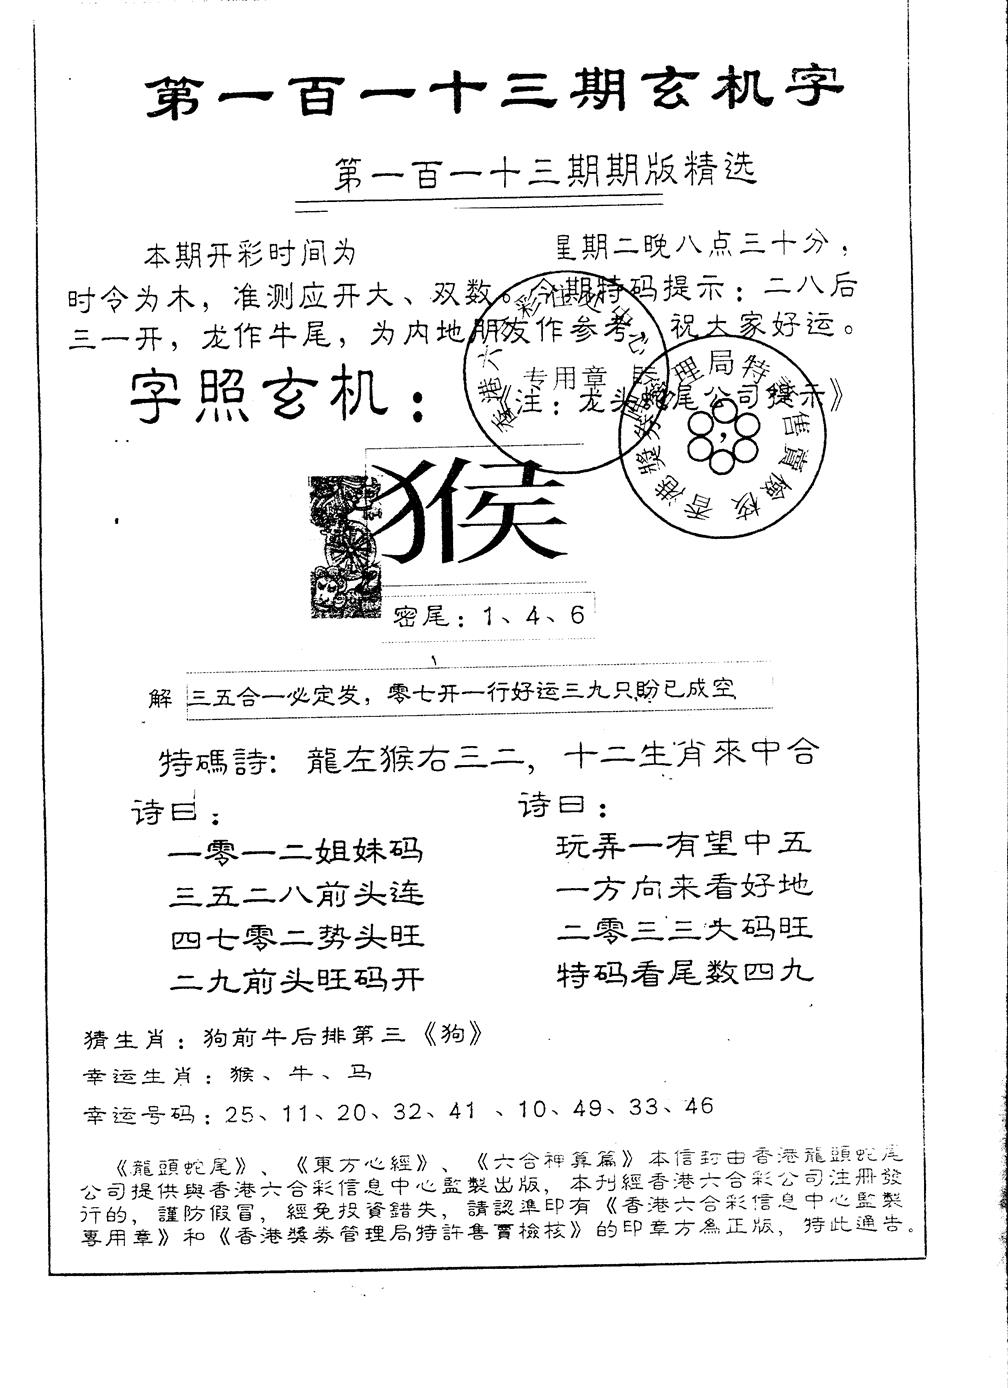 第一百一十三期玄机字
第一百一十三期期版精选
本期开彩时间为 星期二晚八点三十分，
时令为木，准测应开大、双数。今期特码提示：二八后
三一开，龙作牛尾，为内地朋友作参考，祝大家好运。
字照玄机：
《注：龙头蛇尾公司提示》
专用章
香港獎券管理局特許售賣檢核
猴
密尾：1、4、6
解 三五合一必定发，零七开一行好运三九只盼已成空
特碼詩：龍左猴右三二，十二生肖來中合
诗曰：
一零一二姐妹码
三五二八前头连
四七零二势头旺
二九前头旺码开
诗曰：
玩弄一有望中五
一方向来看好地
二零三三大码旺
特码看尾数四九
猜生肖：狗前牛后排第三《狗》
幸运生肖：猴、牛、马
幸运号码：25、11、20、32、41、10、49、33、46
《龍頭蛇尾》、《東方心經》、《六合神算篇》本信封由香港龍頭蛇尾
公司提供與香港六合彩信息中心監製出版，本刊經香港六合彩公司注冊發
行的，謹防假冒，經免投資錯失，請認準印有《香港六合彩信息中心監製
專用章》和《香港獎券管理局特許售賣檢核》的印章方為正版，特此通告。